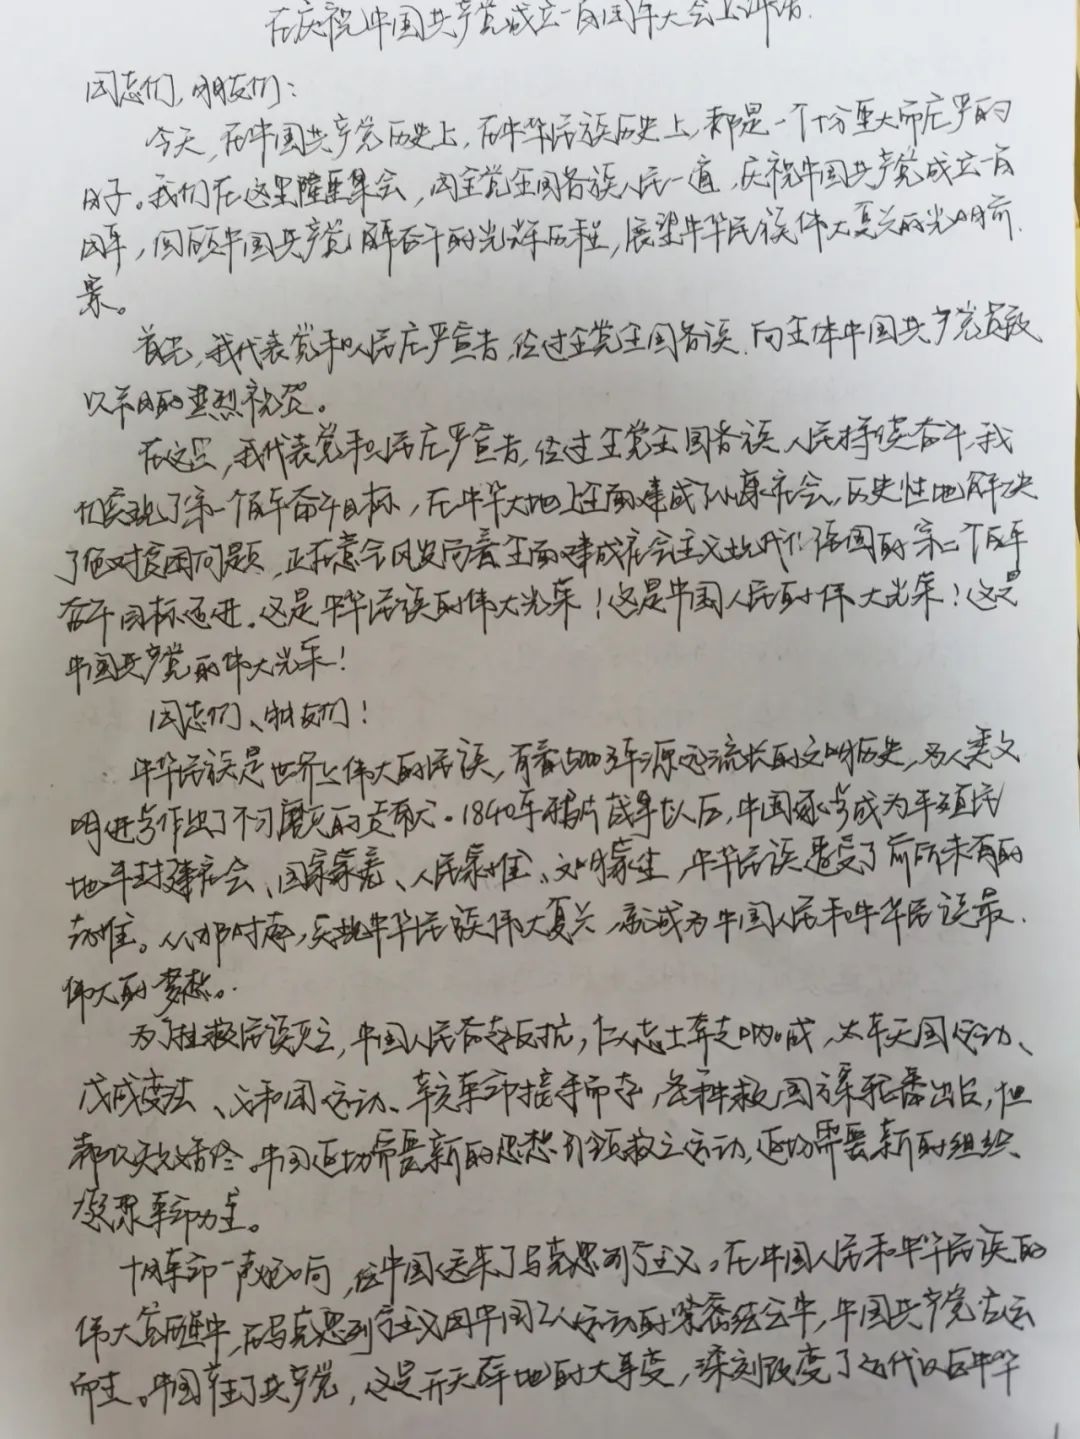 在庆祝中国共产党成立一百周年大会上讲话.
同志们,朋友们:
今天,在中国共产党历史上,在中华民族历史上,都是一个十分重大而庄严的
日子。我们在这里隆重集会,同全党全国各族人民一道,庆祝中国共产党成立一百
周年,回顾中国共产党百年奋斗的光辉历程,展望中华民族伟大复兴的光明前
景。
首先,我代表党和人民庄严宣告,经过全党全国各族,向全体中国共产党员致
以节日的热烈祝贺。
在这里,我代表党和人民庄严宣告,经过全党全国各族人民持续奋斗,我
们实现了第一个百年奋斗目标,在中华大地上全面建成了小康社会,历史性地解决
了绝对贫困问题,正在意气风发向着全面建成社会主义现代化强国的第二个百年
奋斗目标迈进。这是中华民族的伟大光荣!这是中国人民的伟大光荣!这是
中国共产党的伟大光荣!
同志们、朋友们!
中华民族是世界上伟大的民族,有着5000多年源远流长的文明历史,为人类文
明进步作出了不可磨灭的贡献。1840年鸦片战争以后,中国逐步成为半殖民
地半封建社会、国家蒙辱、人民蒙难、文明蒙尘,中华民族遭受了前所未有的
劫难。从那时起,实现中华民族伟大复兴,就成为中国人民和中华民族最
伟大的梦想。
为了拯救民族危亡,中国人民奋起反抗,仁人志士奔走呐喊,太平天国运动、
戊戌变法、义和团运动、辛亥革命接连而起,各种救国方案轮番出台,但
都以失败告终。中国迫切需要新的思想引领救亡运动,迫切需要新的组织
凝聚革命力量。
十月革命一声炮响,给中国送来了马克思列宁主义。在中国人民和中华民族的
伟大觉醒中,在马克思列宁主义同中国工人运动的紧密结合中,中国共产党应运
而生。中国产生了共产党,这是开天辟地的大事变,深刻改变了近代以后中华